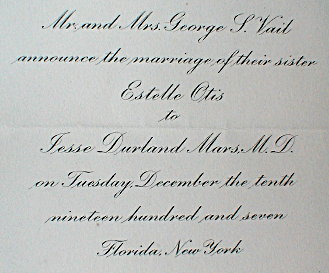 Mr. and Mrs. George S. Vail
announce the marriage of their sister
Estelle Otis
to
Jesse Durland Mars, M.D.
on Tuesday, December the tenth
nineteen hundred and seven
Florida, New York